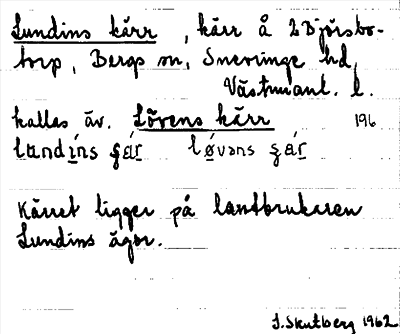 Lundins kärr, kärr å 2 Björsbo-
torp, Bergs sn, Snevringe hd,
Västmanl. l.
kallas äv. Lövens kärr 196
Kärret ligger på lantbrukaren
Lundins ägor.
S. Skutberg 1962